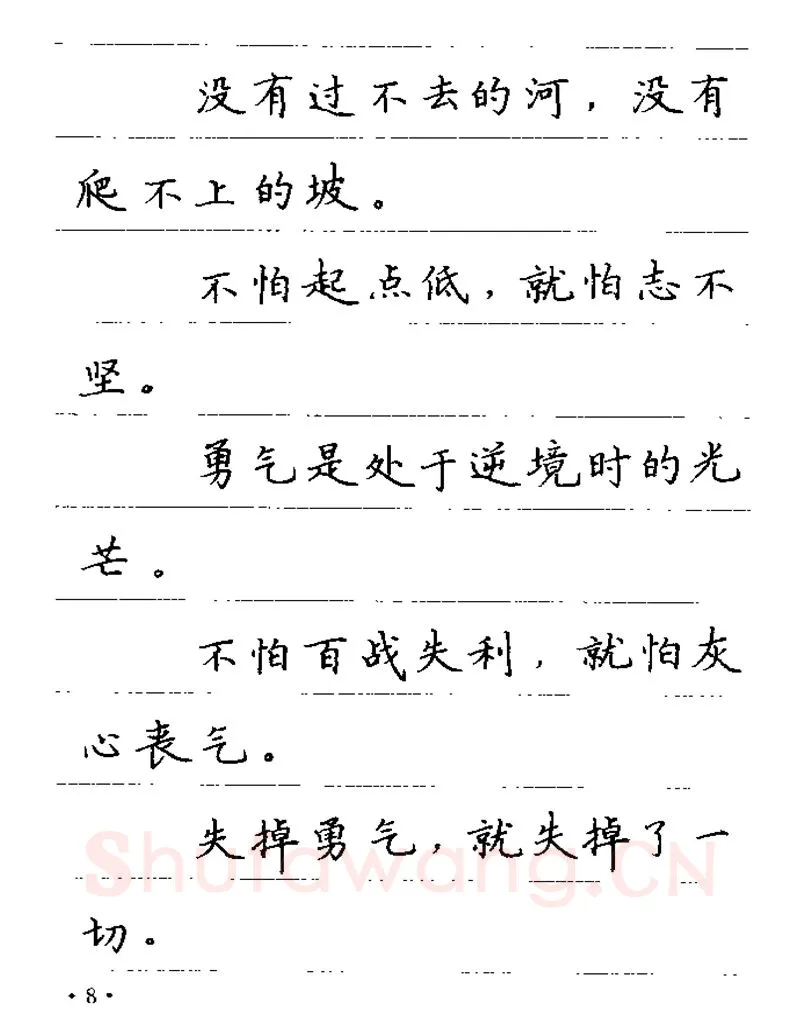 没有过不去的河，没有
爬不上的坡。
不怕起点低，就怕志不
坚。
勇气是处于逆境时的光
芒。
不怕百战失利，就怕灰
心丧气。
失掉勇气，就失掉了一
切。
Shufawang.CN
·8·